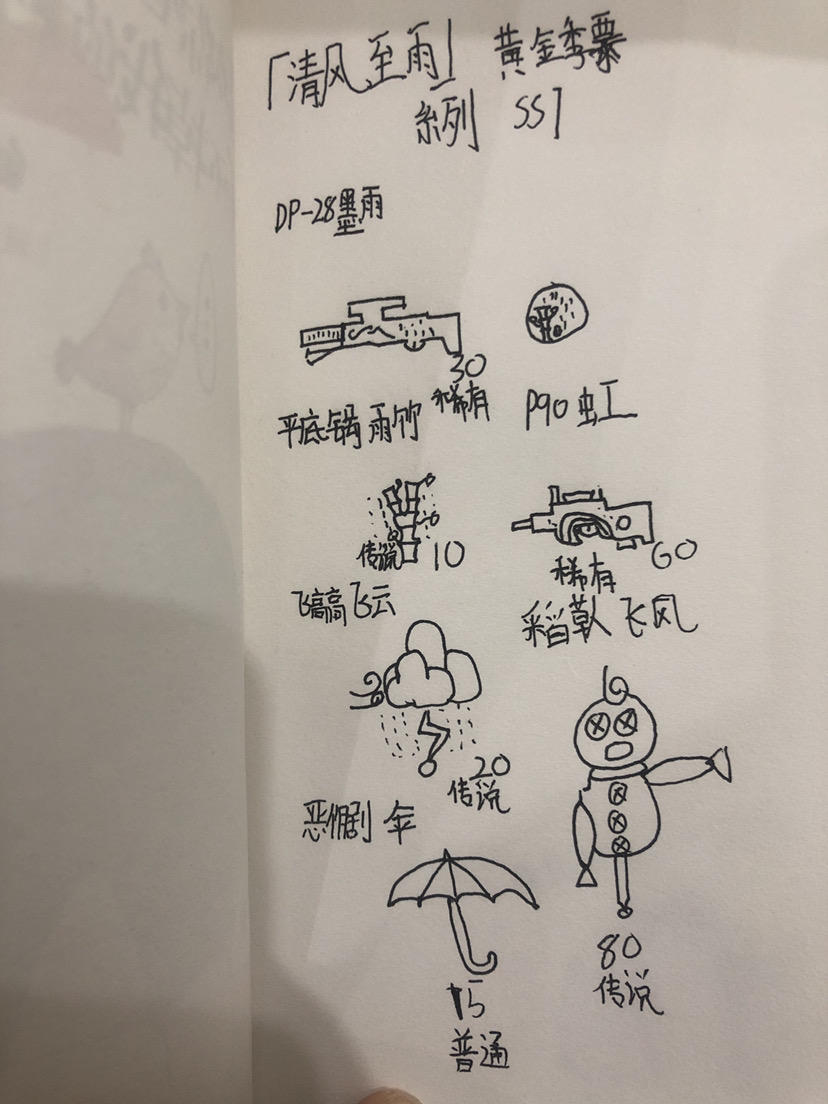 「清风至雨」 黄金季票
系列 SS1
DP-28墨雨
30
稀有
平底锅雨竹
P90虹
传说 10
60
稀有
飞高高飞云
稻草人飞风
20
传说
恶作剧 伞
15
普通
80
传说